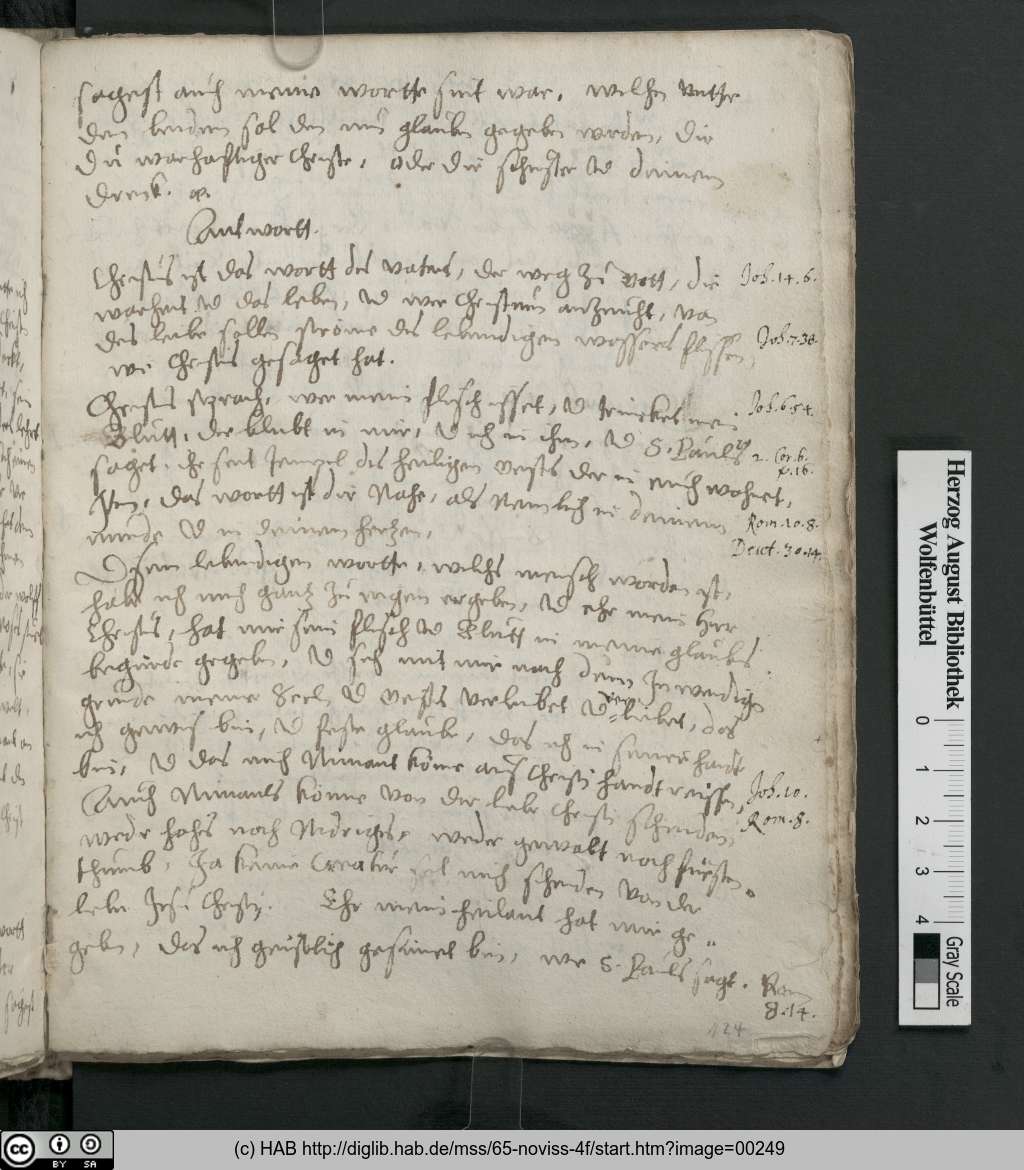 sagest auch meine wortte sint war, welchen
dem beiden sol den nuhn glauben gegeben werden, die
du warhafftiger Christe, oder die schrifften deinem
Antwortt.
Christus ist das wortt des vaters, der weg zu Gott, die Joh. 14. 6.
warheit vnd das leben, vnd wer Christum annimbt, von
des leibe sollen ströme des lebendigen wassers fliessen, Joh. 7. 38.
wie Christus gesaget hat.
Christus sprach, wer mein fleisch isset, vnd trincket mein Joh. 6. 54.
Blutt, der bleibt in mir, vnd ich in ihm, vnd S. Paulus 2. Cor. 6. v. 16.
saget, ihr seit Tempel des heiligen Geists der in euch wohnet,
Item, das wortt ist dir Nahe, als Nemlich in deinem Rom. 10. 8.
munde vnd in deinem hertzen, Deut. 30. 14.
Disem lebendigen wortte, welchs mensch worden ist,
habe ich mich gantz zu eigen ergeben, vnd ehr mein Herr
Christus, hat mir sein fleisch vnd Blutt in meine glaubens
begirde gegeben, vnd sich mit mir nach dem Inwendigen
grunde meiner Seelen vnd Geists verleibet vnd verliebet, das
ich gewis bin, vnd feste glaube, das ich in seiner handt
bin, vnd das mich Nimant könne aus Christi handt reissen, Joh. 10.
Auch Nimants könne von der liebe Christi scheiden, Rom. 8.
weder hohes noch Nidriges, weder gewalt noch fürsten
thumb, Ja keine Creatur sol mich scheiden von der
liebe Jesu Christj. Ehr mein heilant hat mir ge=
geben, das ich geistlich gesinnet bin, wie S. Pauls sagt. Rom
8. 14.
124
Herzog August Bibliothek
Wolfenbüttel
0
1
2
3
4
Gray Scale
(c) HAB http://diglib.hab.de/mss/65-noviss-4f/start.htm?image=00249